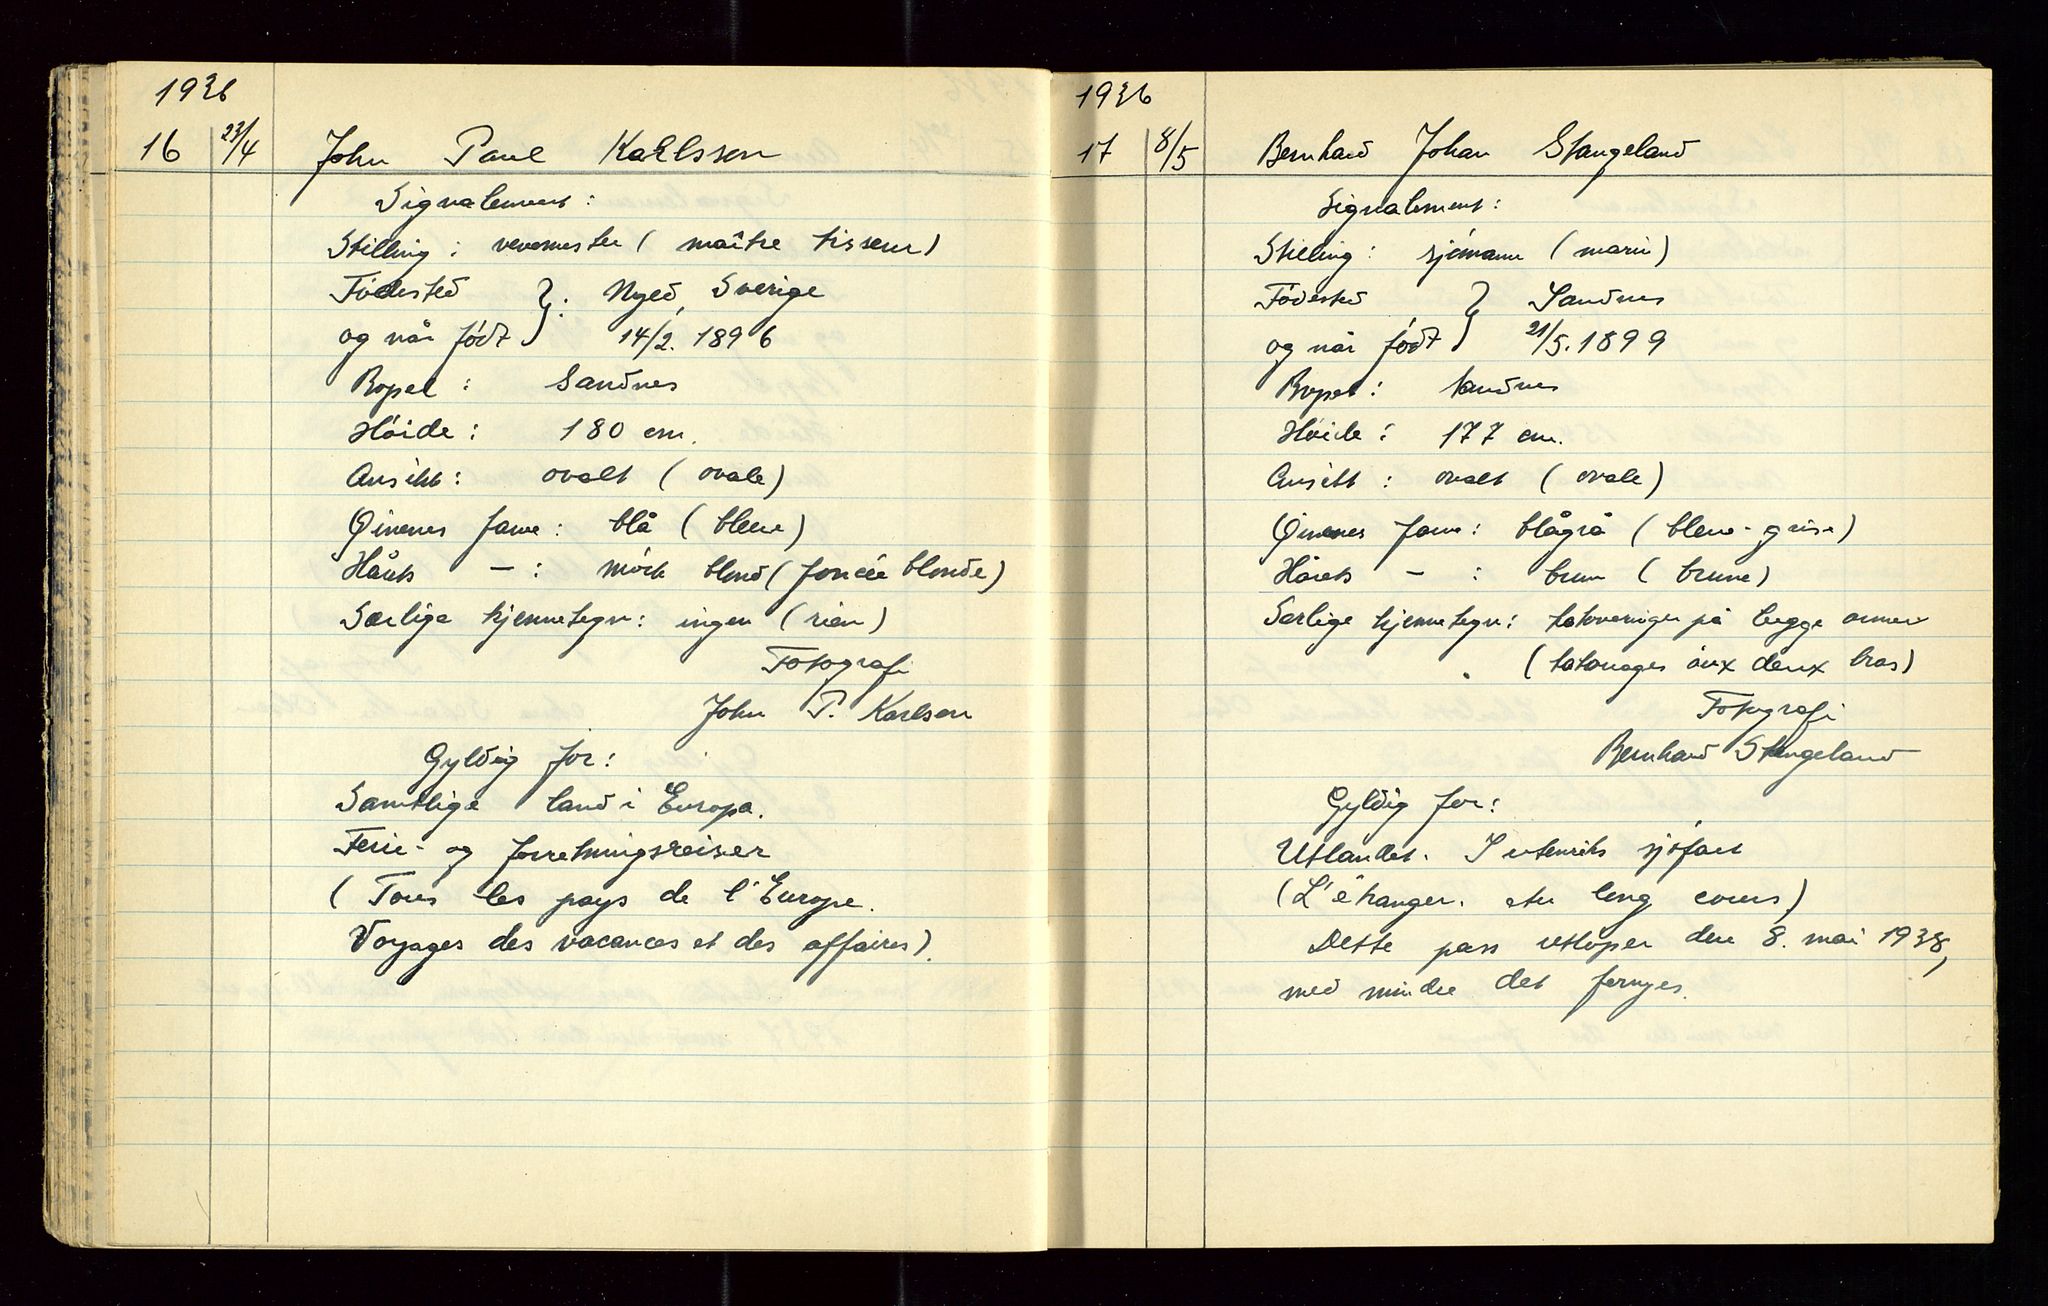 1936
16 23/4 John Paul Karlsson
Signalement:
Stilling: vevemester (maître tisseur)
Fødested
og når født } : Nyed, Sverige
14/2. 1896
Bopel: Sandnes
Høide: 180 cm.
Ansikt: ovalt (ovale)
Øinenes farve: blå (bleue)
Hårets — : mörk blond (foncée blonde)
Særlige kjennetegn: ingen (rien)
Fotografi
John P. Karlson
Gyldig for:
Samtlige land i Europa.
Ferie- og forretningsreiser
(Tous les pays de l'Europe.
Voyages des vacances et des affaires).
1936
17 8/5 Bernhard Johan Stangeland
Signalement:
Stilling: sjømann (marin)
Fødested } Sandnes
og når født 21/5. 1899
Bopel: Sandnes
Høide: 177 cm.
Ansikt: ovalt (ovale)
Øinenes farve: blågrå (bleue-grise)
Hårets — : brun (brune)
Særlige kjennetegn: tatoveringer på begge armer
(tatouages aux deux bras)
Fotografi
Bernhard Stangeland
Gyldig for:
Utlandet. I utenriks sjøfart
(L'étranger. au long cours)
Dette pass utløper den 8. mai 1938,
med mindre det fornyes.